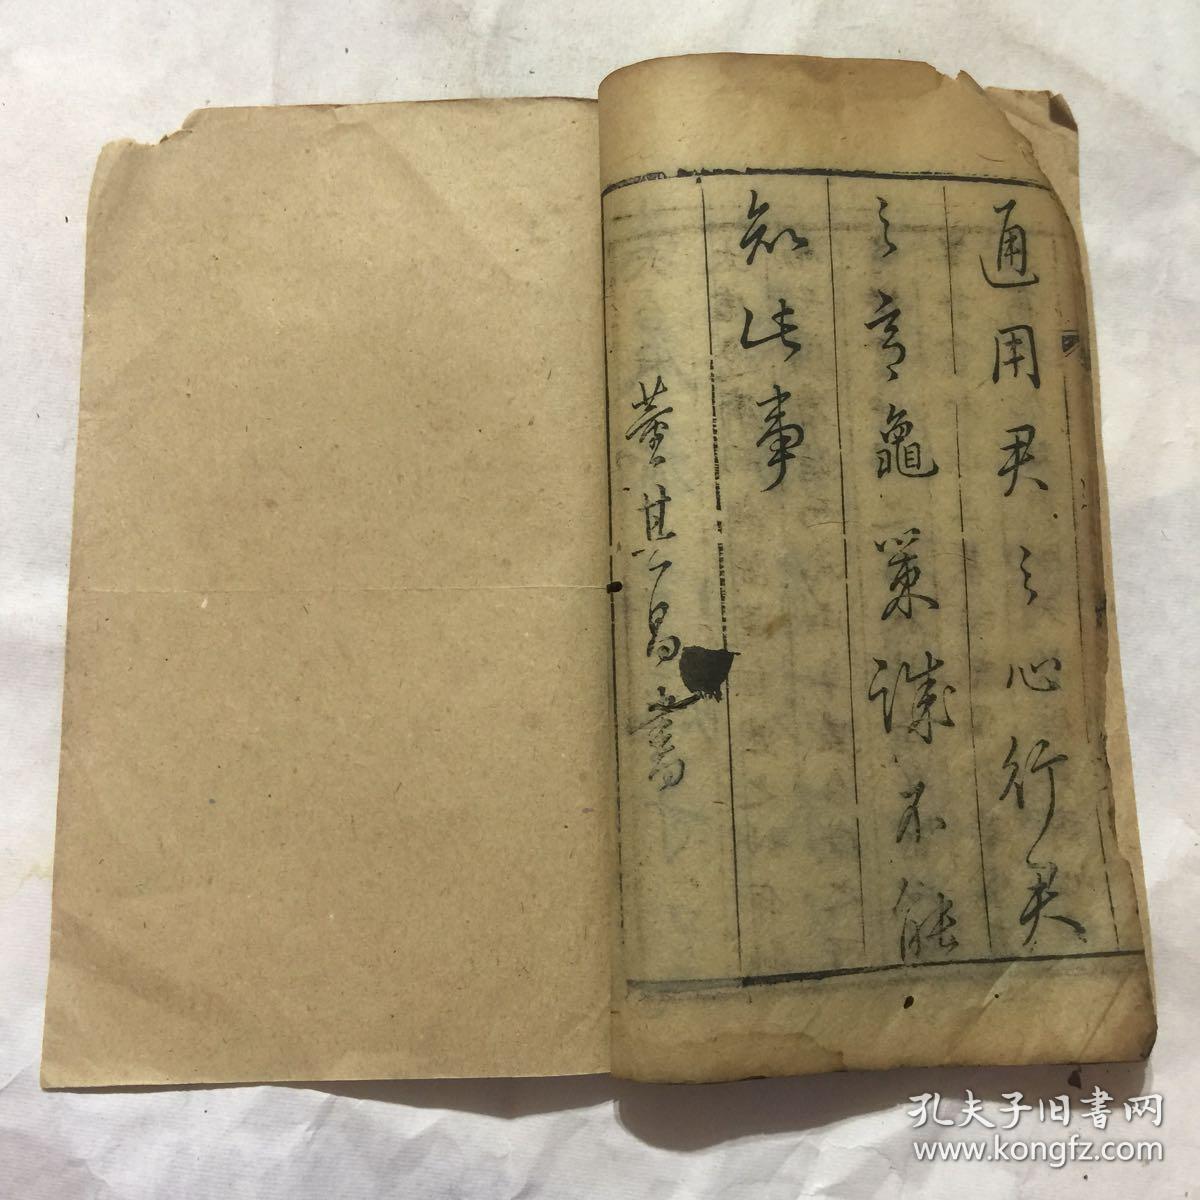 通用君之心行君
之意龜策誠不能
知此事
董其昌書
孔夫子旧書网
www.kongfz.com